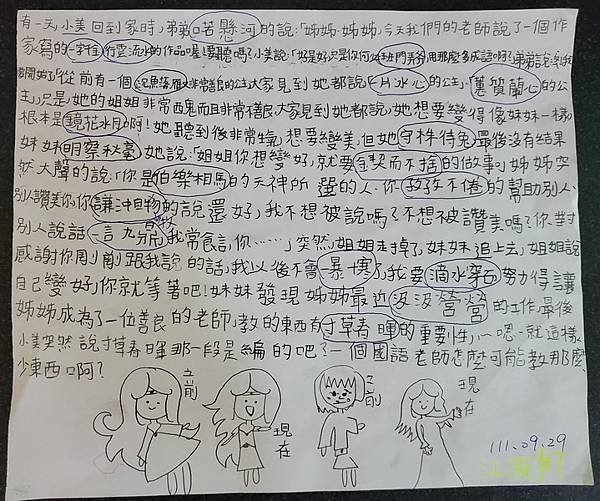 有一天,小美回到家時,弟弟口若懸河的說:「姊姊、姊姊,今天我們的老師說了一個作
家寫的一字千金、行雲流水的作品喔!要聽嗎?」小美說:「好是好,只是你何必班門弄斧,用那麼多成語啊?」弟弟說:
開始了!「從前有一個沉魚落雁又非常善良的公主,大家見到她都說片冰心的公主」,「蕙質蘭心的公
主」,只是她的姐姐非常西鬼而且非常不善良,大家見到她都說,她想要變得像妹妹一樣,
根本是鏡花水月啊!她聽到後非常生氣,想要變美,但她守株待兔,最後沒有結果。
妹妹明察秋毫,她說:「姐姐你想變好,就要鍥而不捨的做事。」姊姊突
然大聲的說:「你是伯樂相馬的天神所選的人,你孜孜不倦的幫助別人,
別人讚美你,你謙沖自牧的說還好,我不想被說嗎?不想被讚美嗎?你對
別人說話一言九鼎,我常食言,你……」突然,姐姐走掉了,妹妹追上去,姐姐說
感謝你剛剛跟我說的話,我以後不會一暴十寒了,我要滴水穿石,努力得讓
自己變好,你就等著吧!妹妹發現姊姊最近汲汲營營的工作,最後
姊姊成為了一位善良的老師,教的東西有寸草春暉的重要性,~嗯~就這樣。
小美突然說寸草春暉那一段是編的吧?一個國語老師怎麼可能教那麼
少東西啊?
之前
現在
之前
現在
111.09.29